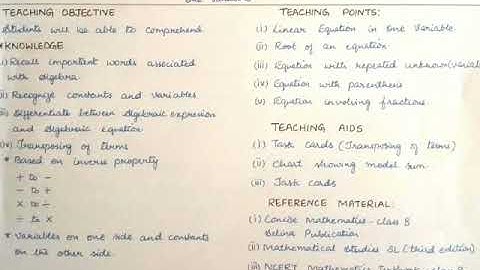 TEACHING OBJECTIVE
Students will be able to comprehend
*KNOWLEDGE
i) Recall important words associated
with algebra.
ii) Recognize constants and variables
iii) Differentiate between algebraic expression
and algebraic equation
(iv) Transposing of terms
* Based on inverse property
+ to -
- to +
× to ÷
÷ to ×
* Variables on one side and constants
on the other side.
TEACHING POINTS:
(i) Linear Equation in one Variable
(ii) Root of an equation
(iii) Equation with repeated unknown(variab
(iv) Equation with parenthesis
(v) Equation involving fractions.
TEACHING AIDS
(i) Task Cards (Transposing of terms)
(ii) Chart showing model sum
(iii) Task cards
REFERENCE MATERIAL:
(i) Concise Mathematics - class 8
Selina Publication
(ii) Mathematical Studies SL (third edition)
(iii) NCERT Mathematics Textbook - class 8